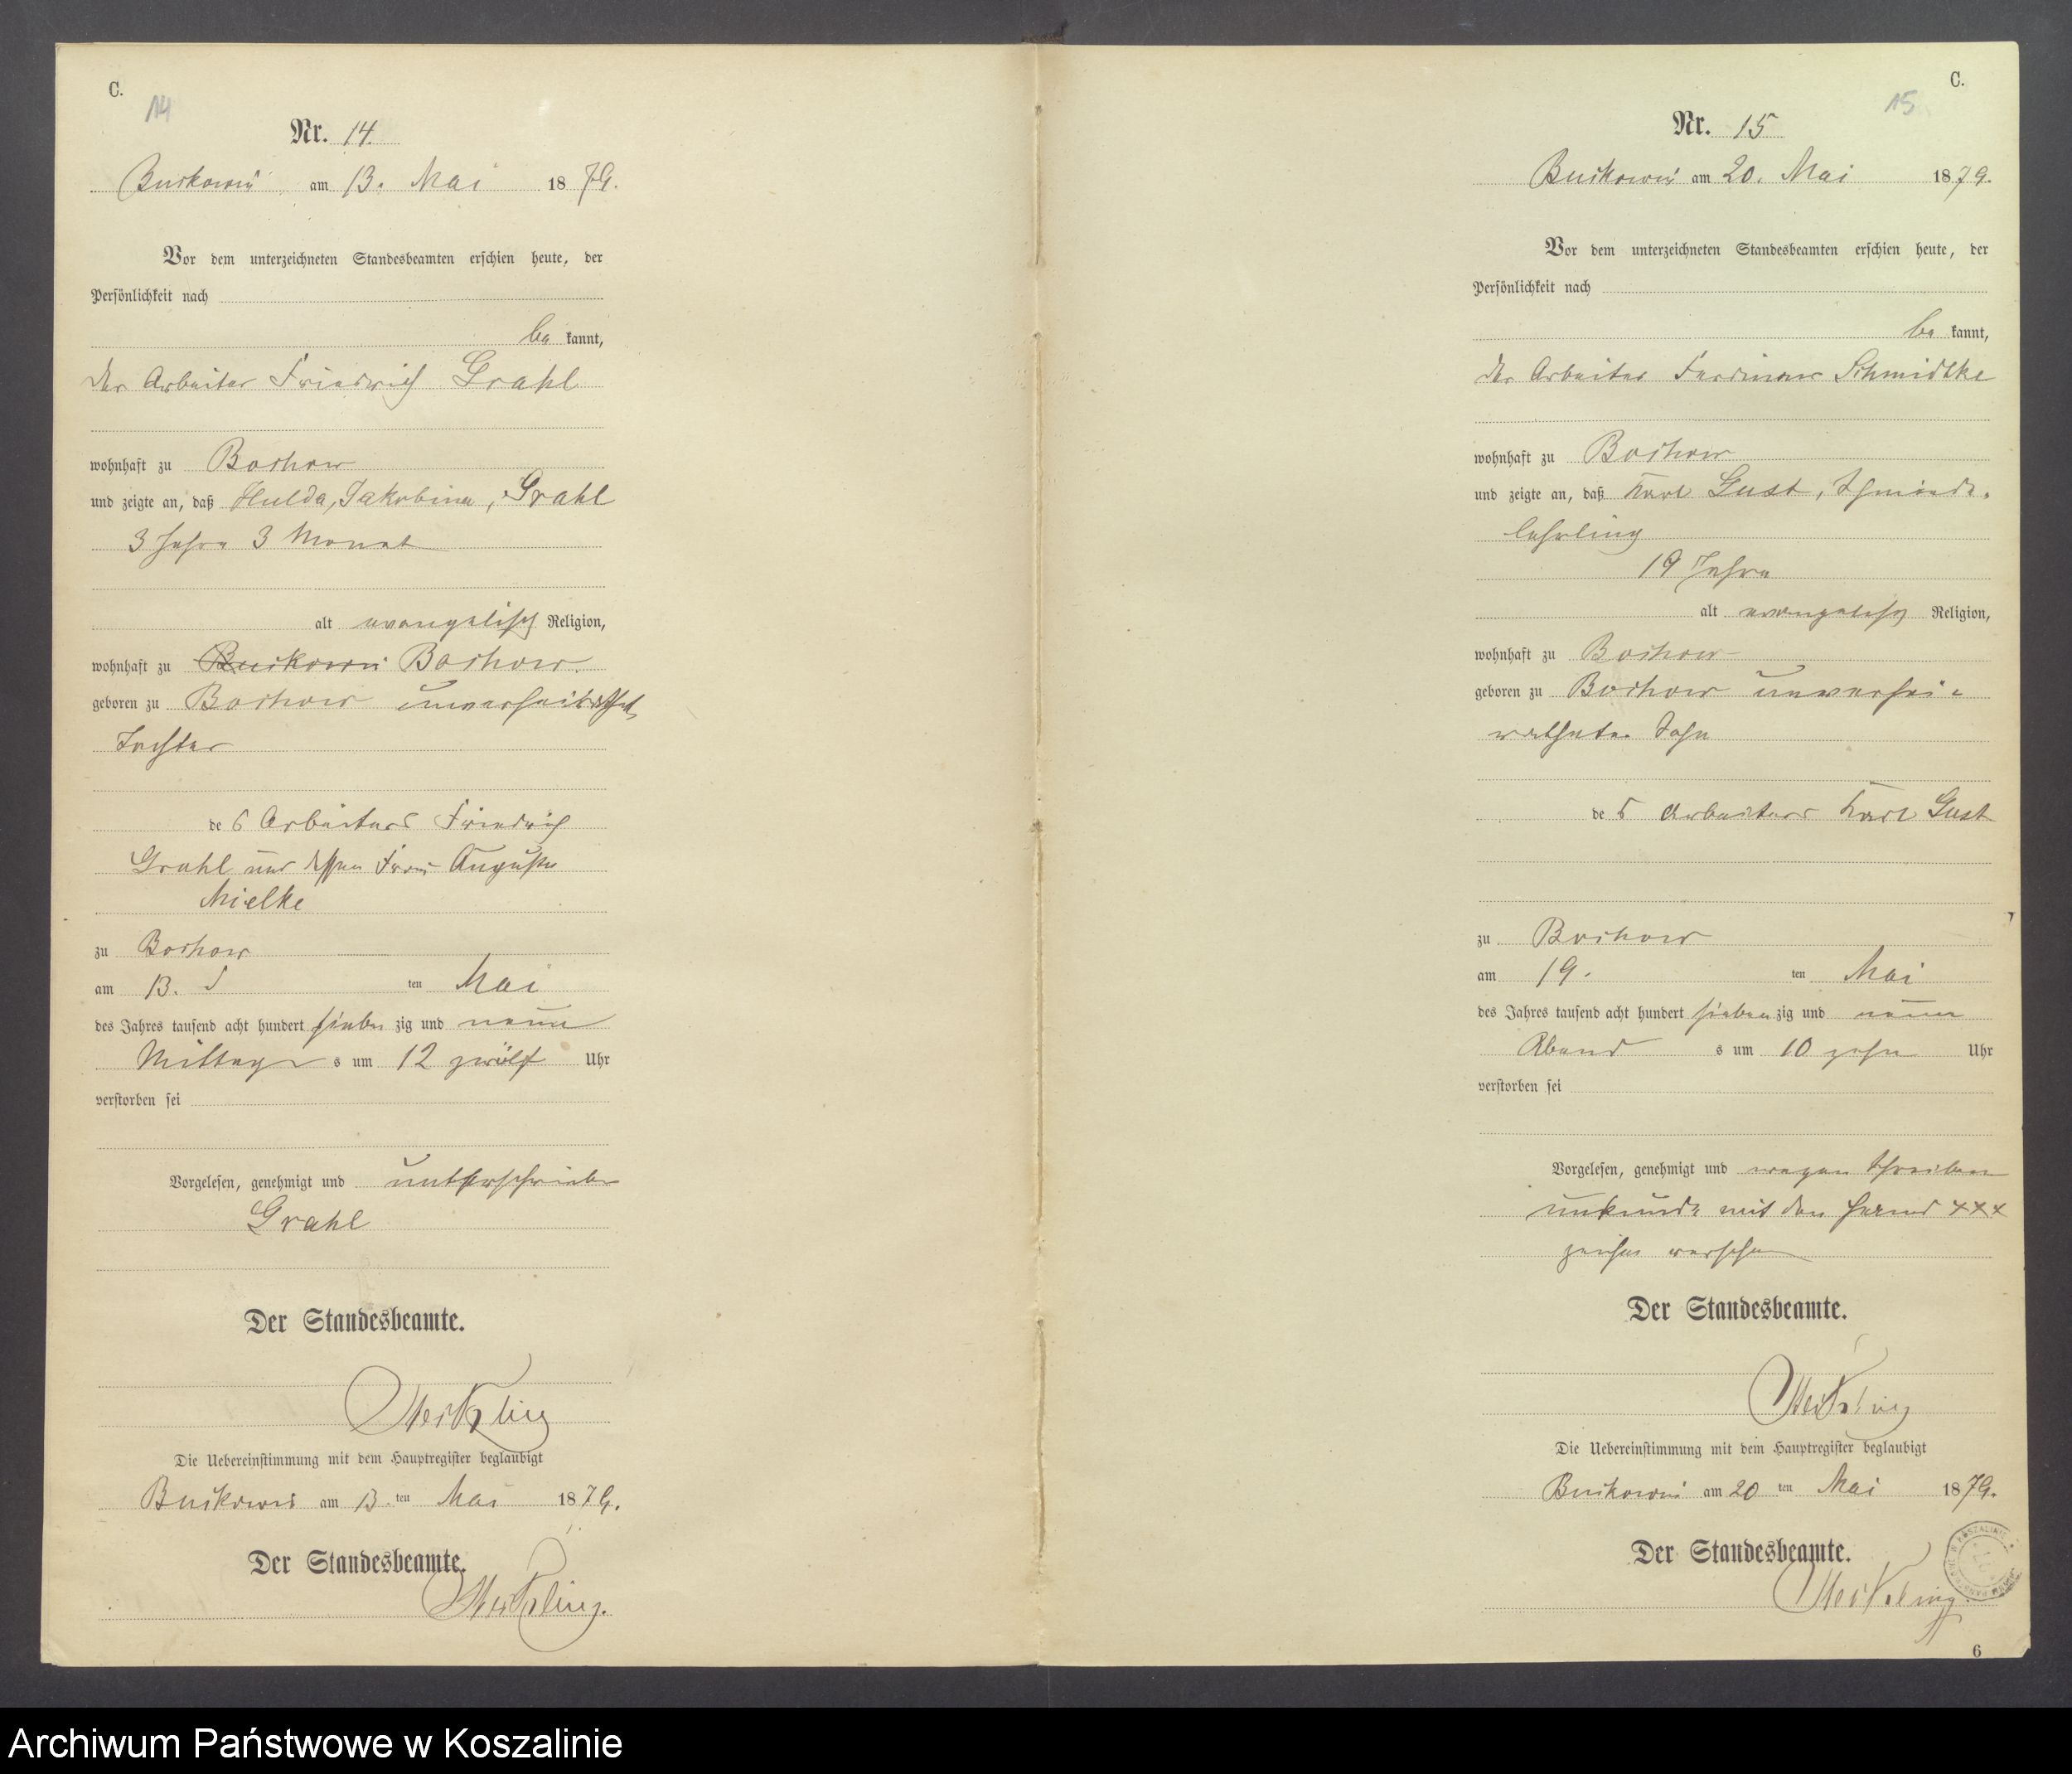 C.
14
Nr. 14.
Buckowin am 13. Mai 1879.
Vor dem unterzeichneten Standesbeamten erschien heute, der
Persönlichkeit nach
be kannt,
der Arbeiter Friedrich Grahl
wohnhaft zu Bochow
und zeigte an, daß Hulda, Jakobine, Grahl
3 Jahre 3 Monat
alt evangelisch Religion,
wohnhaft zu Buckowin Bochow.
geboren zu Bochow
Tochter
de s Arbeiters Friedrich
Grahl und dessen Frau Auguste
Mielke
zu Bochow
am 13. ten Mai
des Jahres tausend acht hundert sieben zig und neun
Mittag s um 12 zwölf Uhr
verstorben sei
Vorgelesen, genehmigt und unterschrieben
Grahl
Der Standesbeamte.
Die Uebereinstimmung mit dem Hauptregister beglaubigt
Buckowin am 13. ten Mai 1879.
Der Standesbeamte.
C.
15
Nr. 15
Buckowin am 20. Mai 1879.
Vor dem unterzeichneten Standesbeamten erschien heute, der
Persönlichkeit nach
be kannt,
der Arbeiter Ferdinand Schmidtke
wohnhaft zu Bochow
und zeigte an, daß Karl Gust, Schmiede-
lehrling
19 Jahre
alt evangelisch Religion,
wohnhaft zu Bochow
geboren zu Bochow unverhei-
ratheter Sohn
de s Arbeiters Karl Gust
zu Bochow
am 19. ten Mai
des Jahres tausend acht hundert sieben zig und neun
Abend s um 10 zehn Uhr
verstorben sei
Vorgelesen, genehmigt und wegen Schreibens
unkunde mit den xxx
zeichen versehen
Der Standesbeamte.
Die Uebereinstimmung mit dem Hauptregister beglaubigt
Buckowin am 20 ten Mai 1879.
Der Standesbeamte.
6
Archiwum Państwowe w Koszalinie